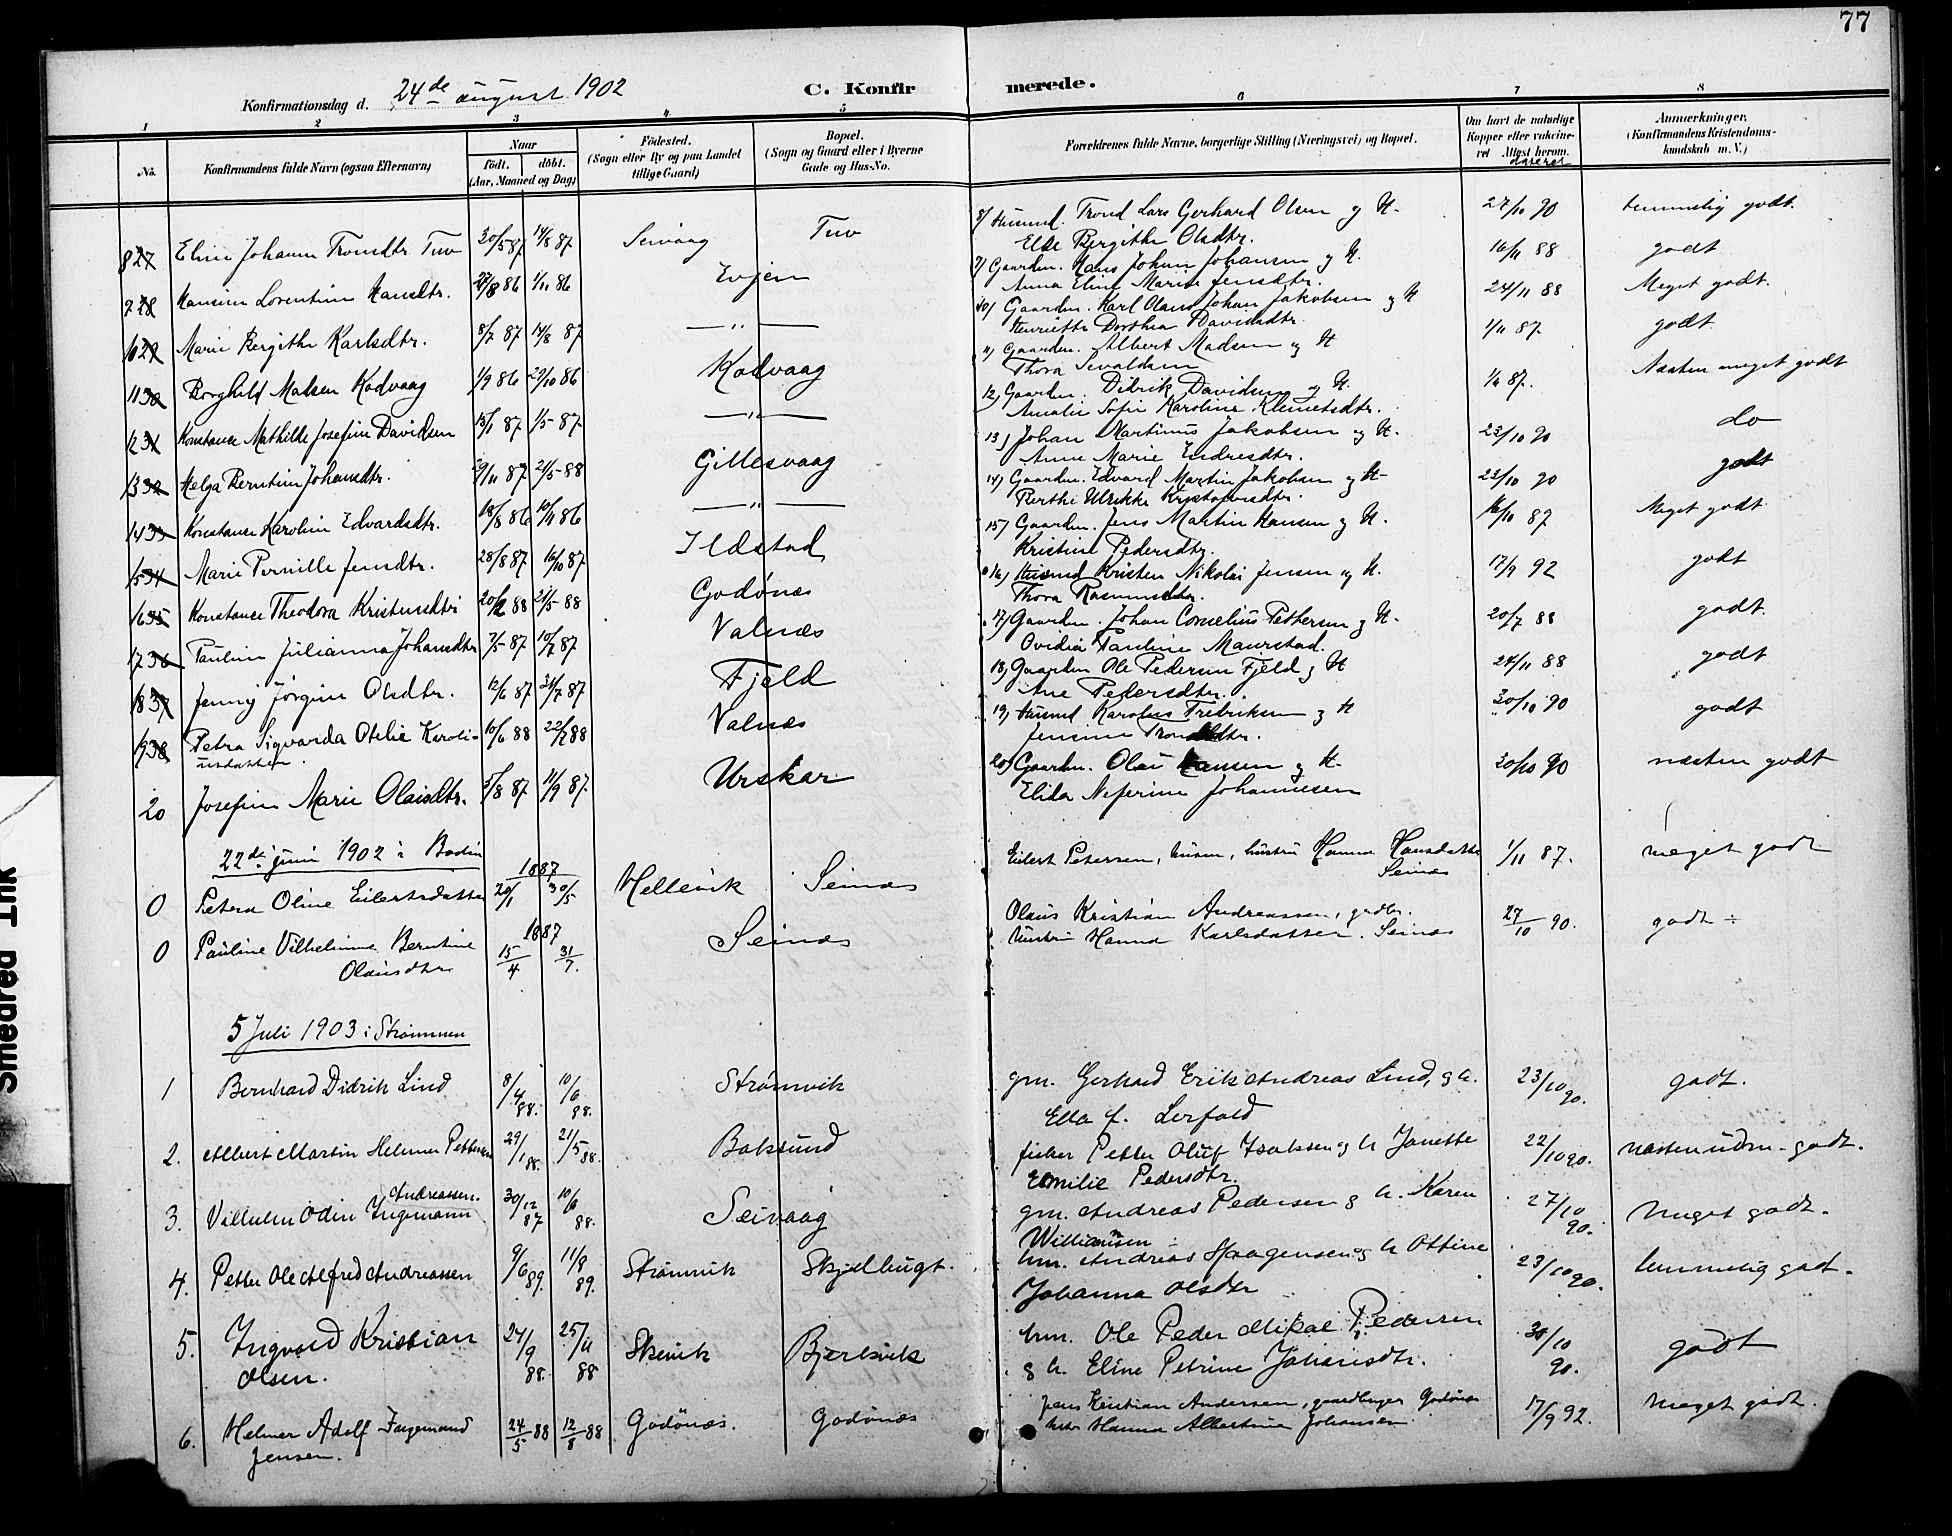 77
Konfirmationsdag d. 24de august 1902
C. Konfirmerede.
1 2 3 4 5 6 7 8
No.
Konfirmandens fulde Navn (ogsaa Efternavn)
Naar
födt. döbt.
(Aar, Maaned og Dag)
Födested.
(Sogn eller By og paa Landet
tillige Gaard)
Bopæl.
(Sogn og Gaard eller i Byerne
Gade og Hus-No.
Forældrenes fulde Navne, borgerlige Stilling (Næringsvei) og Bopæl.
Om havt de naturlige
Kopper eller vakcine-
ret Attest herom.
dateret
Anmærkninger.
(Konfirmandens Kristendoms-
kundskab m. V.)
8 27 Eline Johanna Trondsdtr Tuv 30/5 87 14/8 87 Seivaag Tuv 8/ Husmd. Trond Lars Gerhard Olsen og H. 27/10 90 temmelig godt.
Else Bergithe Olsdtr.
9 28 Hansine Lorentine Hansdtr. 27/8 86 1/11 86 Evjen 9/ Gaardm. Hans Johan Johansen og H. 16/11 88 godt
Anna Eline Marie Jensdtr.
10 29 Marie Bergithe Karlsdtr. 8/7 87 14/8 87 — " — 10/ Gaardm. Karl Olaus Johan Jakobsen og H 24/11 88 Meget godt.
Henriette Dorthea Davidsdtr.
11 30 Borghild Madsen Kodvaag 1/9 86 29/10 86 Kodvaag 11/ Gaardm. Albert Madsen og H 1/11 87 godt
Thora Sivaldsen
12 31 Konstance Mathilde Josefine Davidsen 13/1 87 1/5 87 — " — 12/ Gaardm. Didrik Davidsen og H. 87. Næsten meget godt
Amalie Sofie Karoline Klemetsdtr.
13 32 Helga Berntine Johansdtr. 87 21/5 88 Gillesvaag 13/ Johan Martinus Jakobsen og H. 23/10 90 do
Anne Marie Endresdtr.
14 33 Konstance Karoline Edvardsdtr. 18/8 86 86 — " — 14/ Gaardm. Edvard Martin Jakobsen og H 23/10 90 godt
Berthe Ulrikke Kristoffersdtr.
15 34 Marie Pernille Jensdtr. 28/8 87 16/10 87 Ildstad 15/ Gaardm. Jens Martin Hansen og H. 87 Meget godt.
Kristine Pedersdtr.
16 35 Konstance Theodora Kristensdtr 20/2 88 21/5 88 Godönes 16/ Husmd Kristen Nikolai Jensen og H. 17/9 92 godt
Thora Rasmusdtr.
17 36 Pauline Julianna Johansdtr 7/5 87 10/7 87 Valnæs 17/ Gaardm. Johan Cornelius Pettersen og H. 20/7 88 godt.
Ovidia Pauline Maurstad.
18 37 Jenny Jörgine Olsdtr. 12/6 87 31/7 87 Fjeld 18/ Gaardm Ole Pedersen Fjeld og H 24/11 88 godt
Ane Pedersdtr.
19 38 Petra Sigvarda Otelie Karoli- 10/6 88 22/7 88 Valnæs 19/ Husmd Karolius Fredriksen og H 30/10 90 godt
usdatter. Jensine Trondsdtr.
20 Josefine Marie Olaisdtr. 5/8 87 11/9 87. Urskar 20/ Gaardm. Olai Hansen og H. 30/10 90 næsten godt
Elida Neferine Johannesen
22de juni 1902 i Bodin
0 Petra Oline Eilertsdatter 1887 20/1 30/5 Hellevik Seines Eilert Petersen, husm, hustru Hanna Hansdatter 1/11 87. meget godt
Seines
0 Pauline Vilhelmine Berntine 1887 15/4 31/7. Seines Olaus Kristian Andreassen, grdbr. 27/10 90. godt ÷
Olausdtr hustru Hanna Karlsdatter. Seines
5 Juli 1903 i Strømmen
1 Bernhard Didrik Lind 8/4 88. 10/6 88. Strømvik gm. Gerhard Erik Andreas Lind, g h. 23/10 90. godt.
Ella f. Lerfald
2. Albert Martin Helmer Pettersen 29/1 88. 21/5 88. Baksund fisker Petter Oluf Isaksen og h Janette 22/10 90. næsten udm. godt.
Emilie Pedersdtr.
3. Vilhelm Odin Ingemann Andreassen. 30/12 87 10/6 88. Seivaag gm. Andreas Pedersen g h. Karen 27/10 90. Meget godt.
Williamsen
4. Petter Ole Alfred Andreassen 9/6 89. 11/8 89. Strømvik Skjelbugt. hm. Andreas Haagensen og h Ottine 23/10 90. temmelig godt.
Johanna Olsdtr
5. Ingvald Kristian 24/9 88. 25/11 88 Skeivik Bjerkvik hm. Ole Peder Mikal Pedersen 30/10 90. godt
Olsen. g h. Eline Petrine Johansdtr.
6. Helmer Adolf Ingemand 24/5 88 12/8 88 Godönæs. Godönæs Jens Kristian Andersen, gaardbruger Godönes 17/9 92. Meget godt.
Jensen. Hanna Albertine Johansen
Smedred Ink